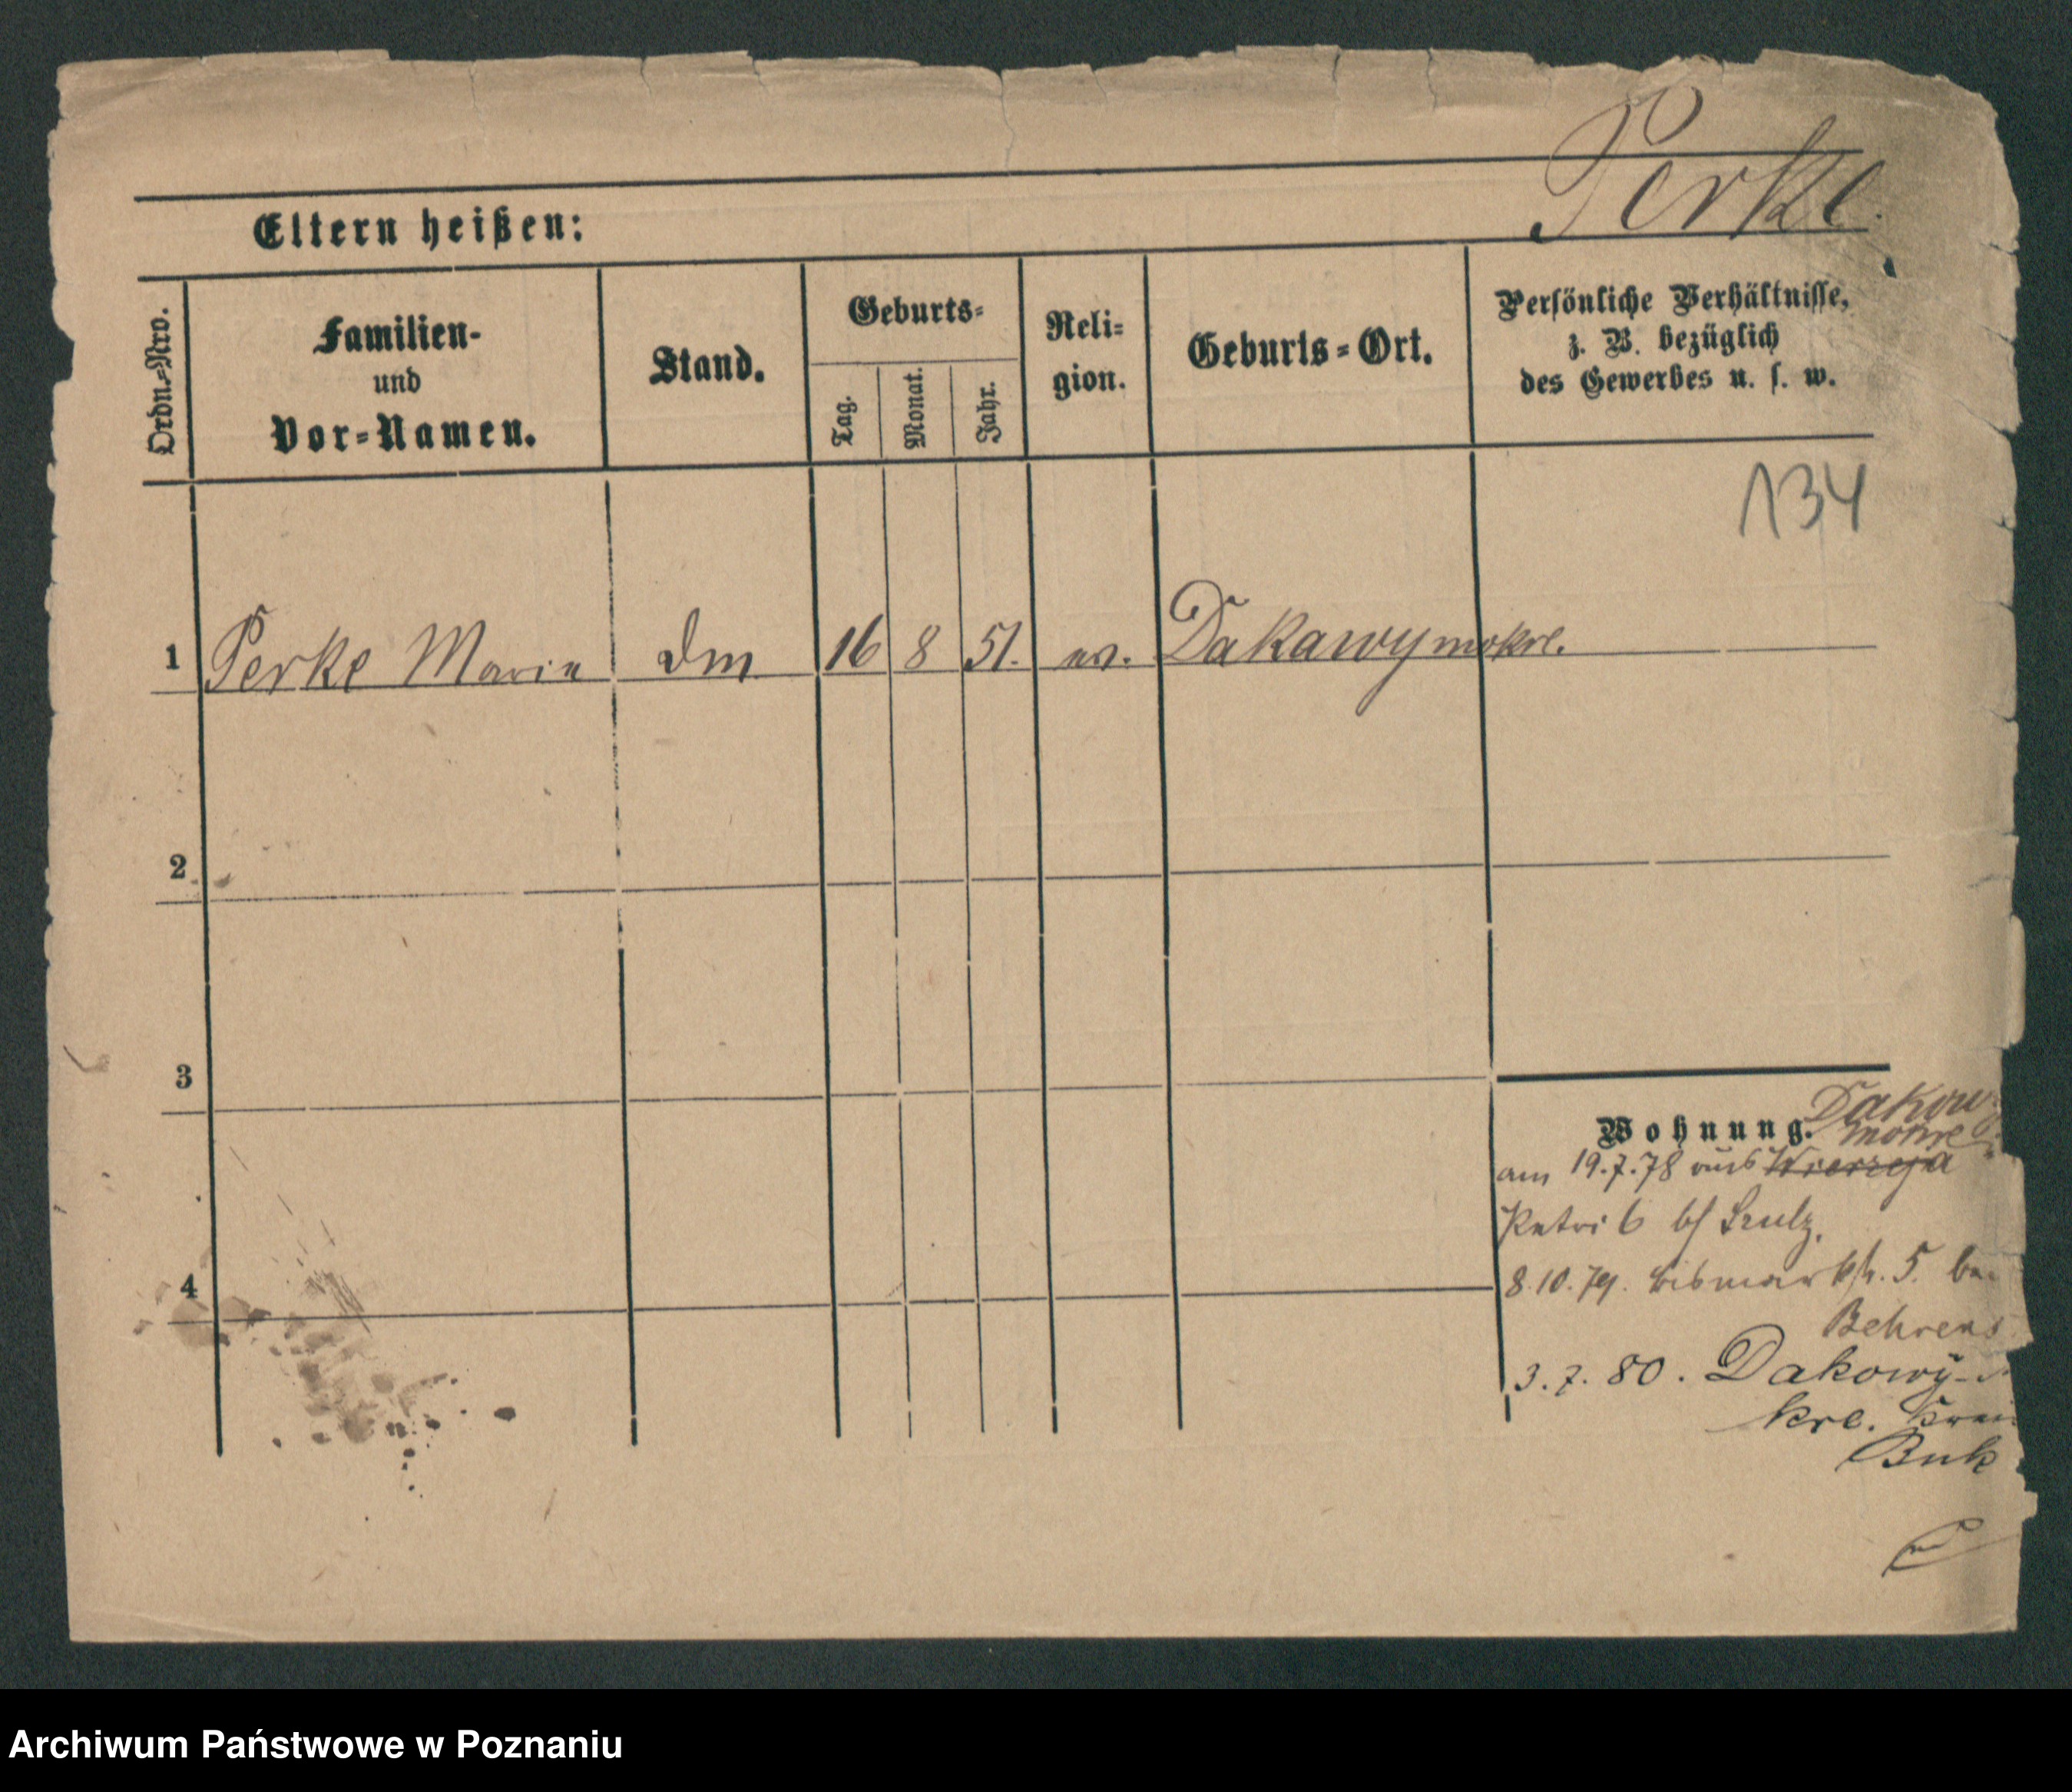 Perke.
Eltern heißen:
Ordn.=Nro.
Familien-
und
Vor=Namen.
Stand.
Geburts=
Tag.
Monat.
Jahr.
Reli=
gion.
Geburts=Ort.
Persönliche Verhältnisse,
z. B. bezüglich
des Gewerbes u. s. w.
134
1 Perke Marie dm 16 8 51. ev. Dakawy mokre.
2
3
4
Wohnung. Dakowy
mokre
am 19.7.78 aus Wierzeja
Petri 6 b/ Szulz.
8.10.79. Bismarkstr. 5. bei
Behrens
3.7.80. Dakowy-
kre. Kreis
Buk
Archiwum Państwowe w Poznaniu